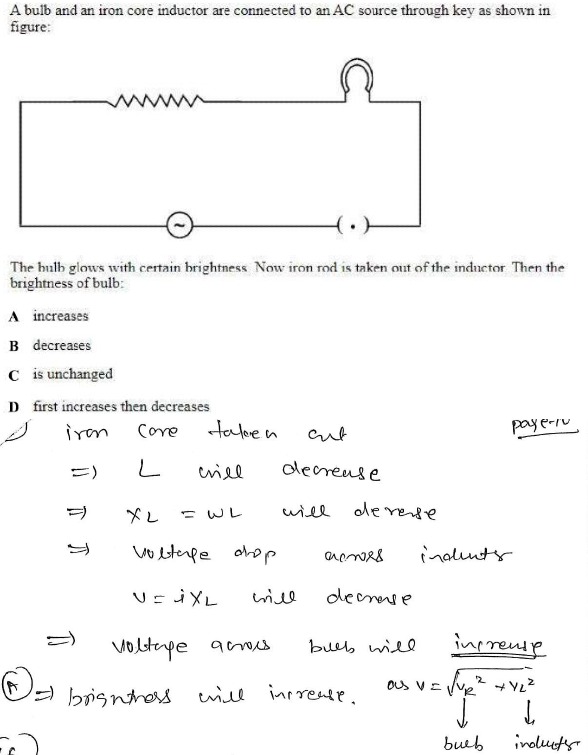 A bulb and an iron core inductor are connected to an AC source through key as shown in
figure:
~
( . )
The bulb glows with certain brightness. Now iron rod is taken out of the inductor. Then the
brightness of bulb:
A increases
B decreases
C is unchanged
D first increases then decreases
iron core taken out
page-IV
=) L will decrease
=) XL = WL will decrease
=) voltage drop across inductor
V = iXL will decrease
=) voltage across bulb will increase
(A) =) brightness will increase. as V = √VR² + VL²
↓ ↓
bulb inductor